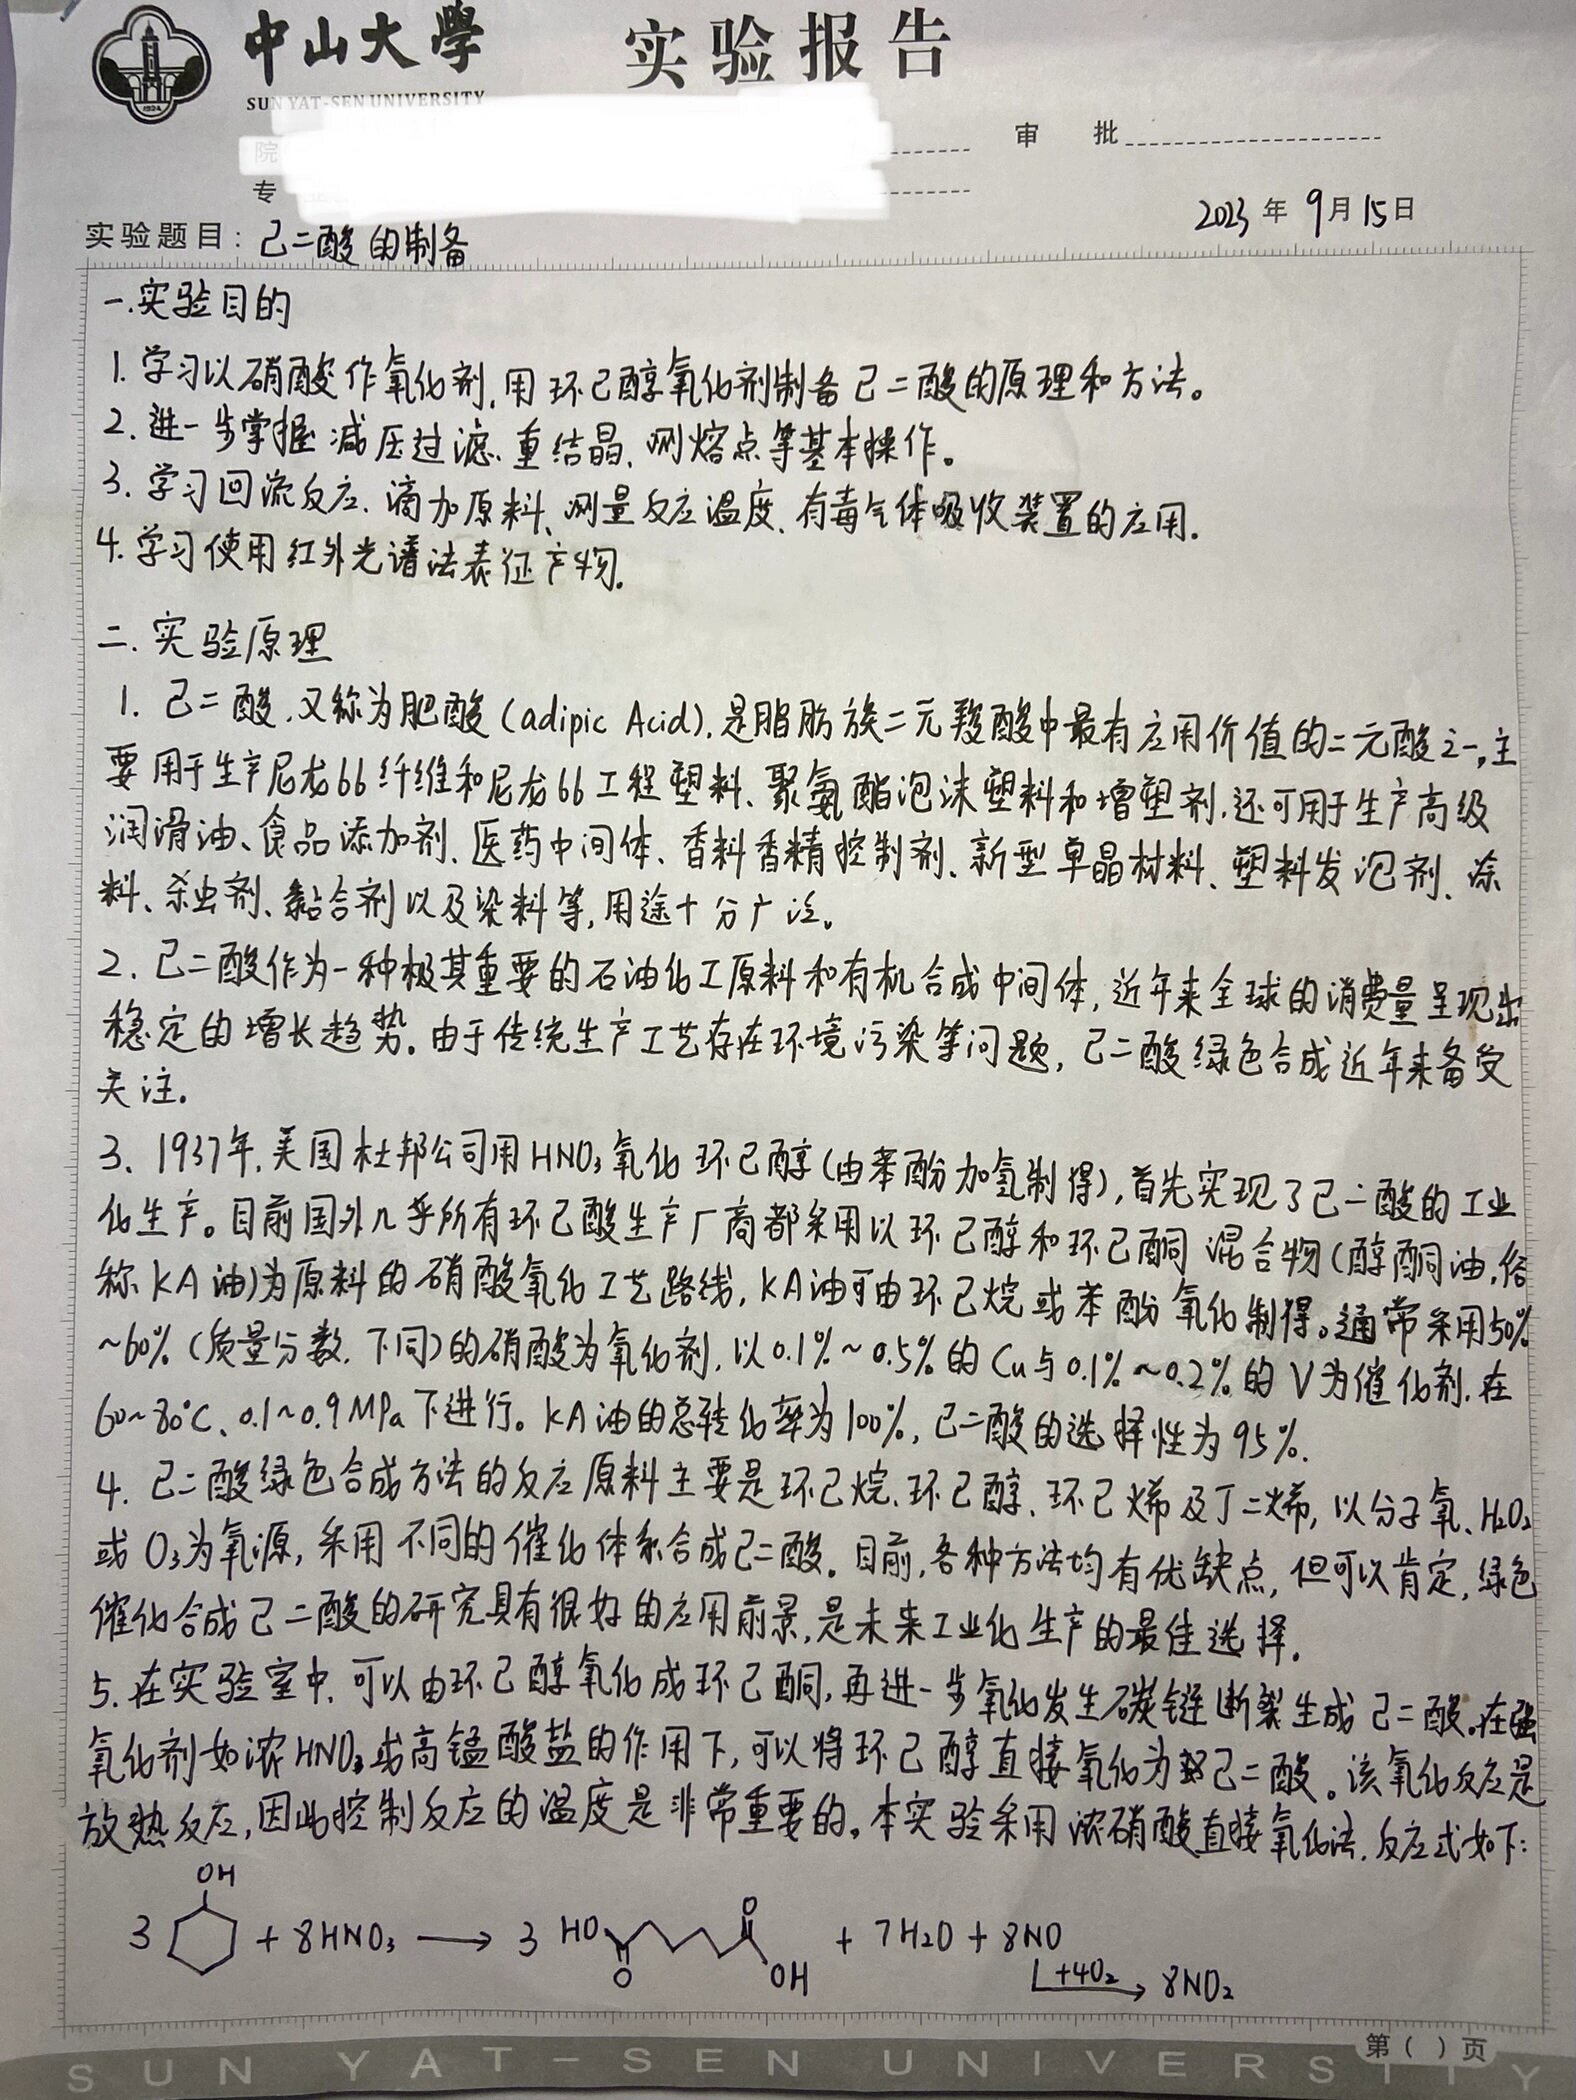 中山大學 实验报告
SUN YAT-SEN UNIVERSITY
1924
院
审 批
专
2023 年 9 月 15 日
实验题目: 己二酸的制备
一.实验目的
1. 学习以硝酸作氧化剂,用环己醇氧化剂制备己二酸的原理和方法。
2. 进一步掌握减压过滤、重结晶、测熔点等基本操作。
3. 学习回流反应、滴加原料、测量反应温度、有毒气体吸收装置的应用.
4. 学习使用红外光谱法表征产物.
二. 实验原理
1. 己二酸,又称为肥酸(adipic Acid),是脂肪族二元羧酸中最有应用价值的二元酸之一,主
要用于生产尼龙66纤维和尼龙66工程塑料、聚氨酯泡沫塑料和增塑剂,还可用于生产高级
润滑油、食品添加剂、医药中间体、香料香精控制剂、新型单晶材料、塑料发泡剂、涂
料、杀虫剂、黏合剂以及染料等,用途十分广泛。
2. 己二酸作为一种极其重要的石油化工原料和有机合成中间体,近年来全球的消费量呈现出
稳定的增长趋势。由于传统生产工艺存在环境污染等问题,己二酸绿色合成近年来备受
关注.
3、1937年,美国杜邦公司用HNO₃氧化环己醇(由苯酚加氢制得),首先实现了己二酸的工业
化生产。目前国外几乎所有环己酸生产厂商都采用以环己醇和环己酮混合物(醇酮油,俗
称KA油)为原料的硝酸氧化工艺路线,KA油可由环己烷或苯酚氧化制得。通常采用50%
~60%(质量分数,下同)的硝酸为氧化剂,以0.1%~0.5%的Cu与0.1%~0.2%的V为催化剂,在
60~80℃、0.1~0.9MPa下进行。KA油的总转化率为100%,己二酸的选择性为95%.
4. 己二酸绿色合成方法的反应原料主要是环己烷、环己醇、环己烯及丁二烯,以分子氧、H₂O₂
或O₃为氧源,采用不同的催化体系合成己二酸.目前,各种方法均有优缺点,但可以肯定,绿色
催化合成己二酸的研究具有很好的应用前景,是未来工业化生产的最佳选择.
5. 在实验室中,可以由环己醇氧化成环己酮,再进一步氧化发生碳链断裂生成己二酸.在强
氧化剂如浓HNO₃或高锰酸盐的作用下,可以将环己醇直接氧化为己二酸。该氧化反应是
放热反应,因此控制反应的温度是非常重要的。本实验采用浓硝酸直接氧化法,反应式如下:
OH
3 + 8HNO₃ → 3 HO O O OH + 7H₂O + 8NO
+4O₂ → 8NO₂
第( )页
SUN YAT-SEN UNIVERSITY